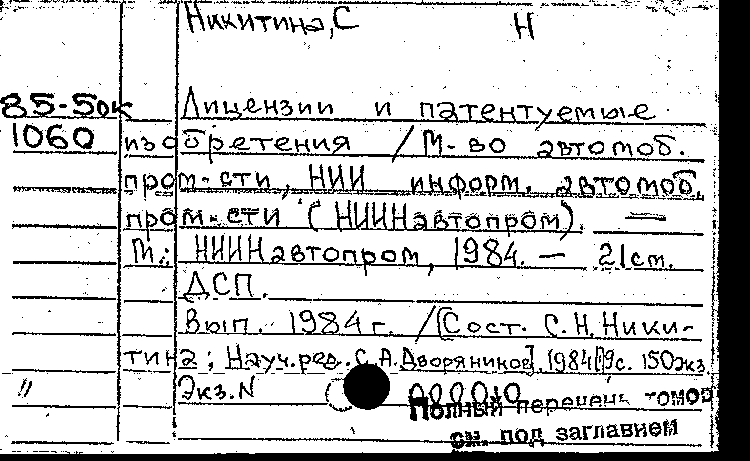 Никитина, С Н
85-5ок Лицензии и патентуемые
1060 изобретения / М-во автомоб.
пром-сти, НИИ информ. автомоб.
пром-сти (НИИНавтопром). —
М.: НИИНавтопром, 1984. — 21см.
ДСП.
Вып. 1984 г. /[Сост. С.Н.Ники-
тина; Науч.ред. С.А.Дворяников]. 1984. 150экз.
" Экз.N
Полный перечень томов
см. под заглавием